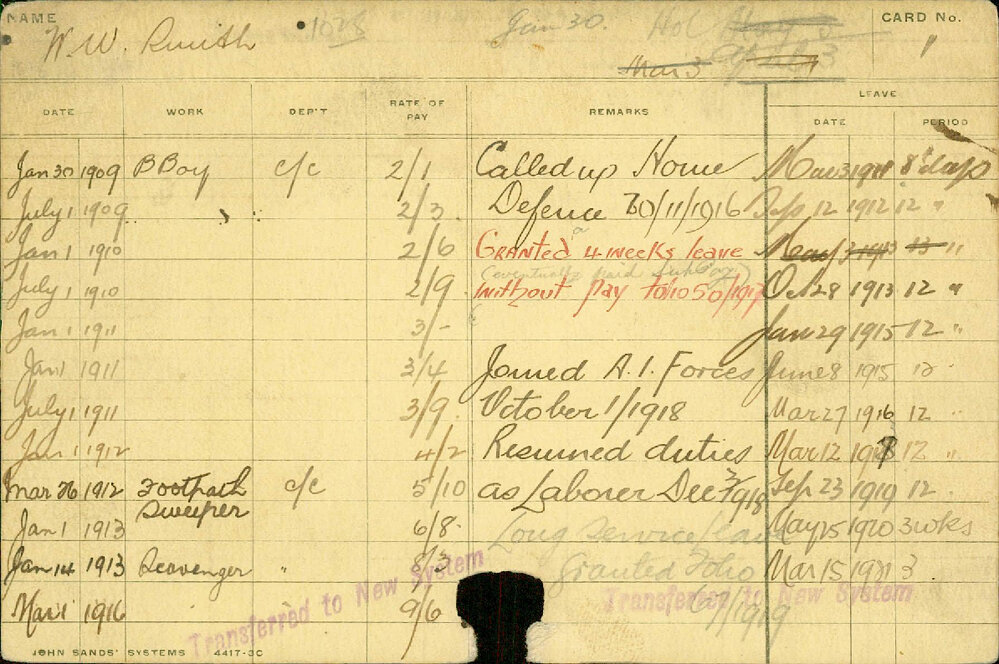 NAME
W. W. Smith
1028
Jan 30.
Hol
Mar 3
CARD No.
1
DATE WORK DEP'T RATE OF PAY REMARKS LEAVE
DATE PERIOD
Jan 30 1909 B Boy c/c 2/1 Called up Home Mar 3 1911 8 days
July 1 1909 2/3 Defence 30/11/1916 Sep 12 1912 12 "
Jan 1 1910 2/6 GRANTED 4 weeks leave May 3 1913 13 "
(eventually paid
July 1 1910 2/9 without pay folio 50/1917 Oct 28 1913 12 "
Jan 1 1911 3/- Jan 29 1915 12 "
Jan 1 1911 3/4 Joined A.I. Forces June 8 1915 12
July 1 1911 3/9 October 1/1918 Mar 27 1916 12 "
Jan 1 1912 4/2 Resumed duties Mar 12 12 "
Mar 26 1912 Footpath c/c 5/10 as Laborer Dec 1918 Sep 23 1919 12
Sweeper
Jan 1 1913 6/8 Long Service Leave May 15 1920 3 wks
Jan 14 1913 Scavenger " 8/3 Granted Folio Mar 15 1921 3
Mar 1 1916 9/6 /1919
Transferred to New System
Transferred to New System
JOHN SANDS' SYSTEMS 4417-3C